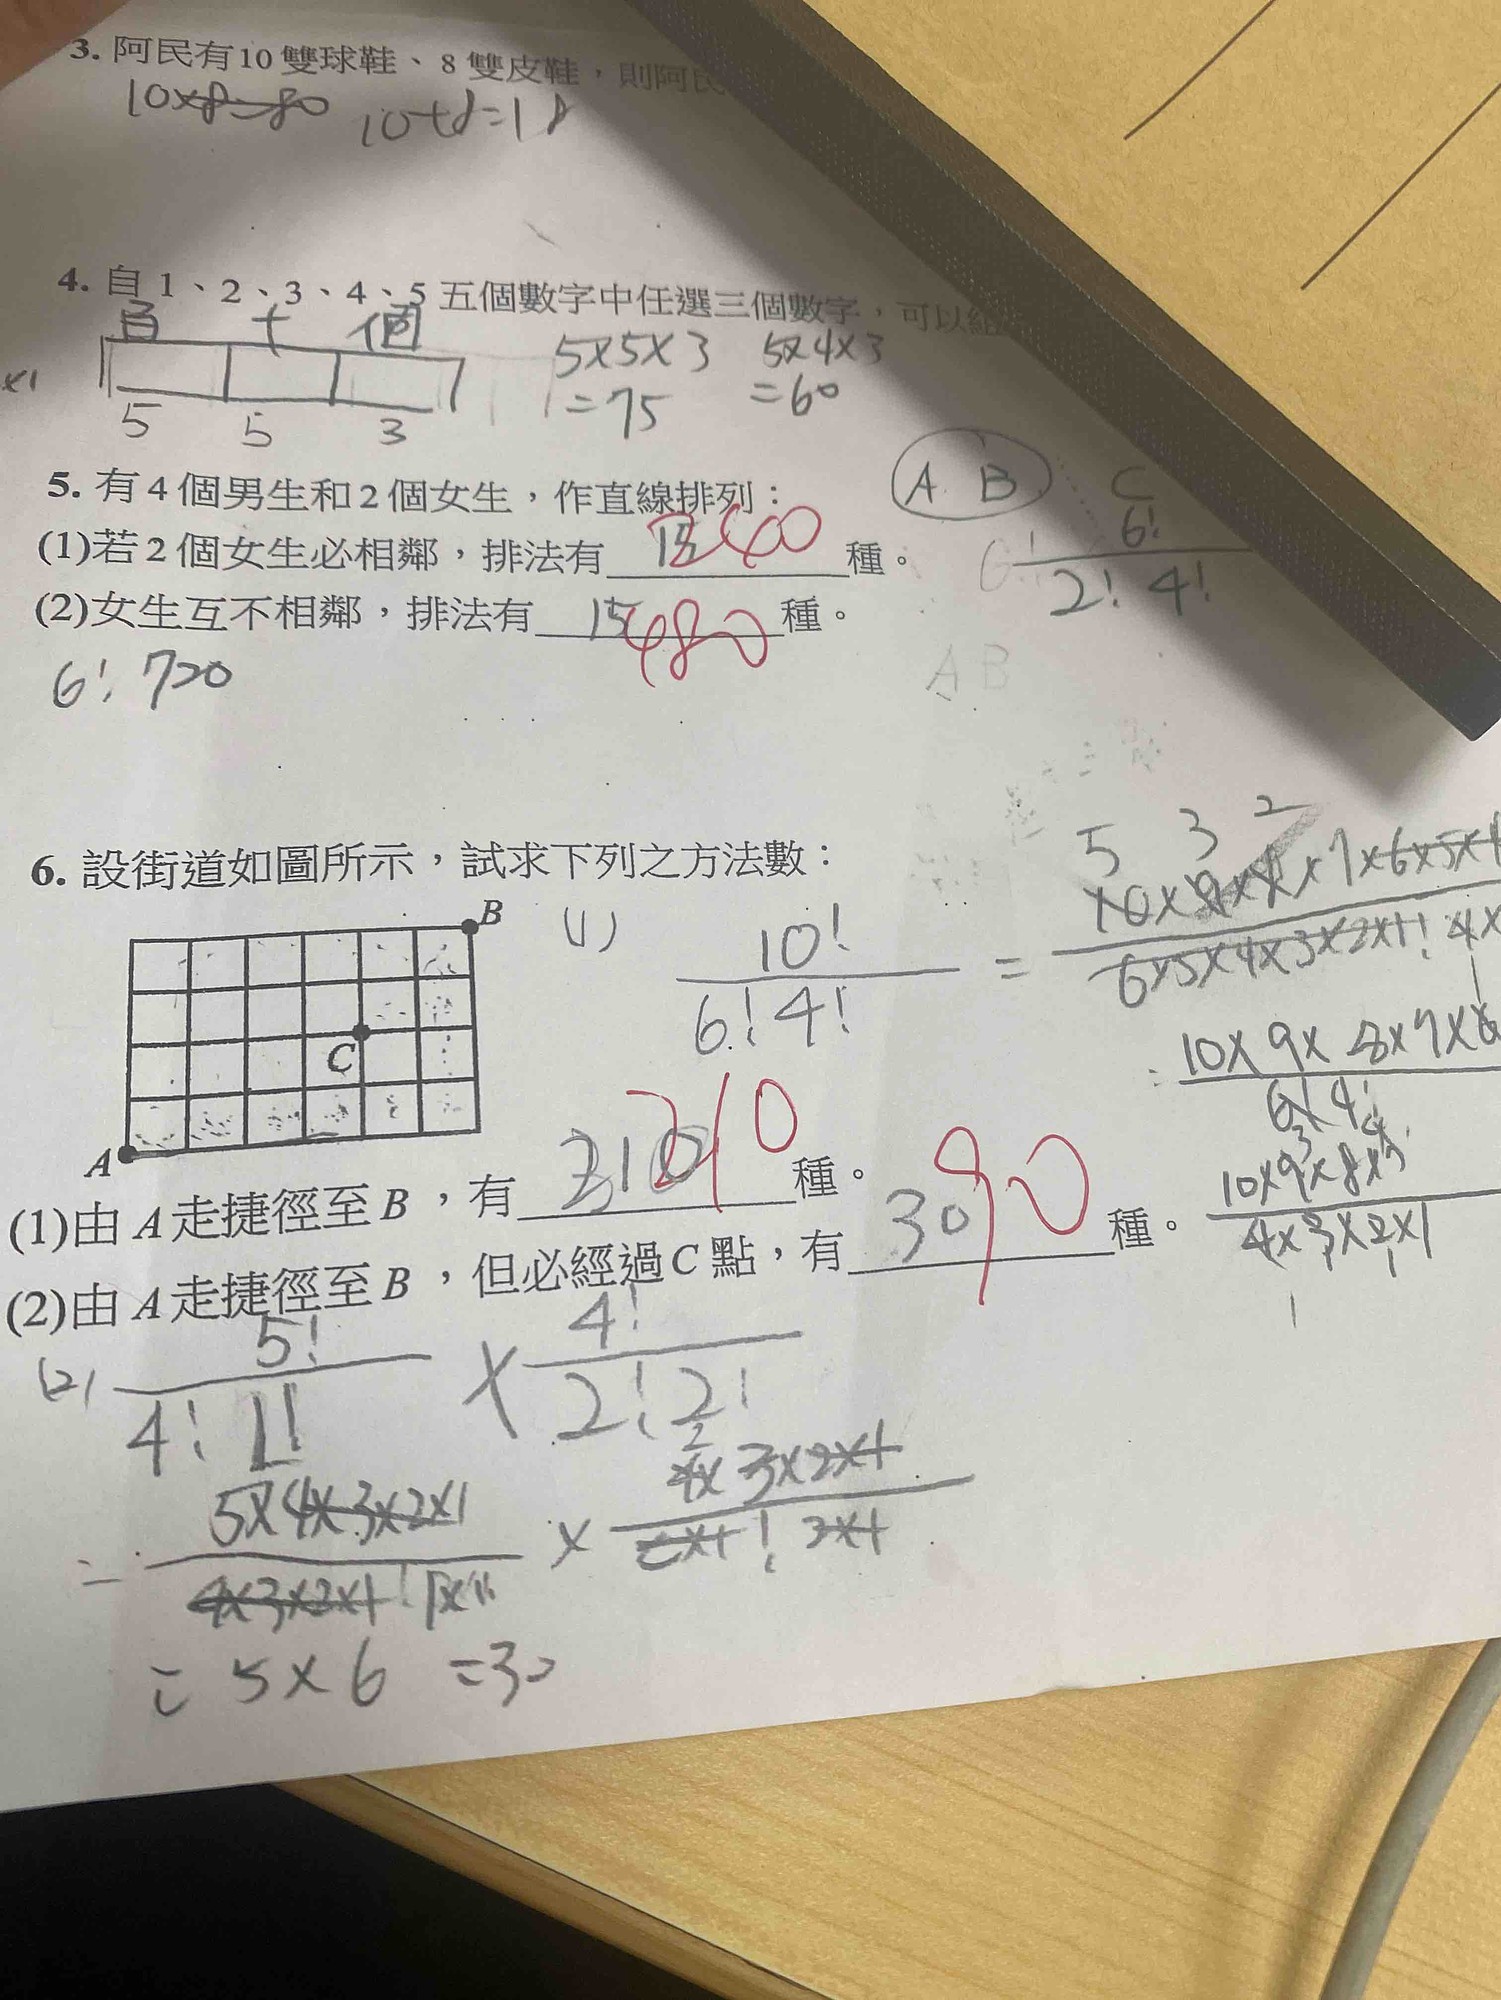 3. 阿民有10雙球鞋、8雙皮鞋，則阿民
10×8=80 10+8=18
4. 自1、2、3、4、5五個數字中任選三個數字，可以組
百 十 個
5×5×3 5×4×3
=75 =60
×1
5 5 3
5. 有4個男生和2個女生，作直線排列：
A B C
(1)若2個女生必相鄰，排法有 240 種。
6!
2! 4!
(2)女生互不相鄰，排法有 15 480 種。
6! 720
A B
6. 設街道如圖所示，試求下列之方法數：
5 3 2
B
(1) 10! / 6! 4! =
6×5×4×3×2×1! 4×
C
10×9×8×7×6
6! 4!
A
(1)由A走捷徑至B，有 210 210 種。
10×9×8×7
4×3×2×1
(2)由A走捷徑至B，但必經過C點，有 30 90 種。
(2) 5! / 4! 1! × 4! / 2! 2!
= 5×4×3×2×1 × 4×3×2×1
4×3×2×1! 2×1! 2×1
= 5×6 =30